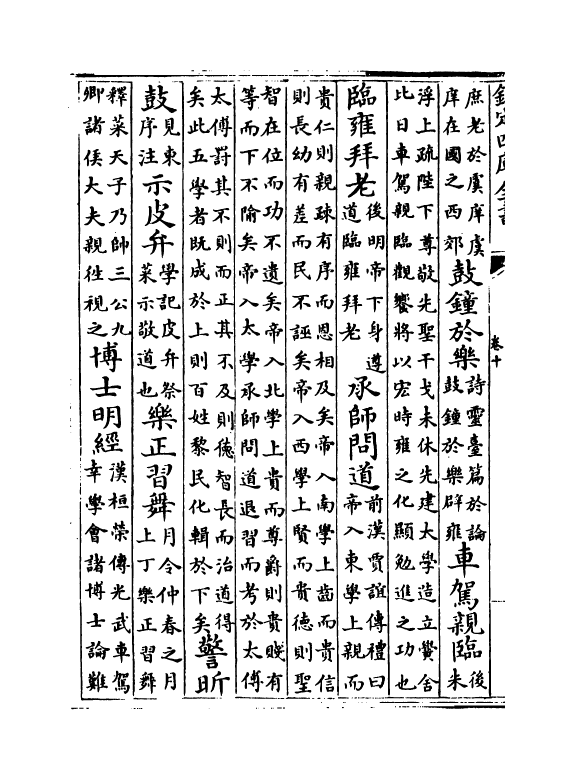 欽定四庫全書
卷十
庶老於虞庠虞庠在國之西郊鼓鐘於樂詩靈臺篇於論鼓鐘於樂辟雍車駕親臨後朱
浮上疏陛下尊敬先聖干戈未休先建太學造立黌舍比日車駕親臨觀饗將以宏時雍之化顯勉進之功也
臨雍拜老後明帝下身遵道臨雍拜老承師問道前漢賈誼傳禮曰帝入東學上親而
貴仁則親疎有序而恩相及矣帝入南學上齒而貴信則長幼有差而民不誣矣帝入西學上賢而貴德則聖
智在位而功不遺矣帝入北學上貴而尊爵則貴賤有等而下不隃矣帝入太學承師問道退習而考於太傅
太傅罸其不則而正其不及則德智長而治道得矣此五學者既成於上則百姓黎民化輯於下矣警昕
鼓見東序注示皮弁學記皮弁祭菜示敬道也樂正習舞月令仲春之月上丁樂正習舞
釋菜天子乃帥三公九卿諸侯大夫親徃視之博士明經漢桓榮傳光武車駕幸學會諸博士論難